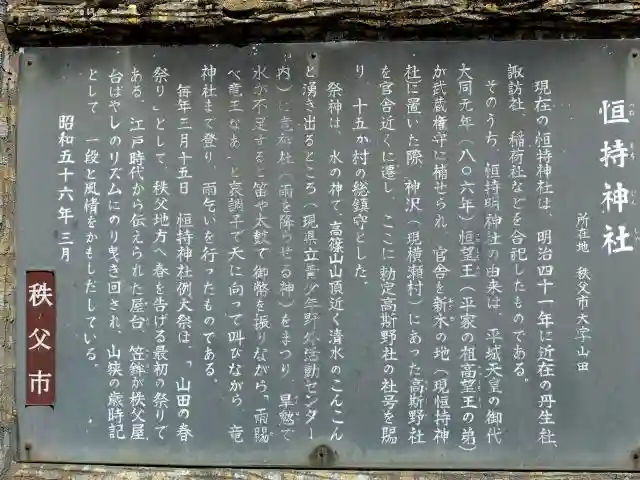 恒持神社
所在地　秩父市大字山田
現在の恒持神社は、明治四十一年に近在の丹生社、
諏訪社、稲荷社などを合祀したものである。
そのうち、恒持明神社の由来は、平城天皇の御代
大同元年（八〇六年）恒望王（平家の祖高望王の弟）
が武蔵権守に補せられ、官舎を新木の地（現恒持神
社に置いた際、神沢（現横瀬村）にあった高斯野社
を官舎近くに遷し、ここに勅定高斯野社の社号を賜
り、十五か村の総鎮守とした。
祭神は、水の神で、高篠山山頂近く清水のこんこん
と湧き出るところ（現県立青少年野外活動センター
内）に竜神社（雨を降らせる神）をまつり、旱魃で
水が不足すると笛や太鼓で御幣を振りながら、「雨賜
べ竜王なあ」と哀調子で天に向って叫びながら、竜
神社まで登り、雨乞いを行ったものである。
毎年三月十五日、恒持神社例大祭は、「山田の春
祭り」として、秩父地方へ春を告げる最初の祭りで
ある。江戸時代から伝えられた屋台、笠鉾が秩父屋
台ばやしのリズムにのり曳き回され、山狭の歳時記
として、一段と風情をかもしだしている。
昭和五十六年三月
秩父市